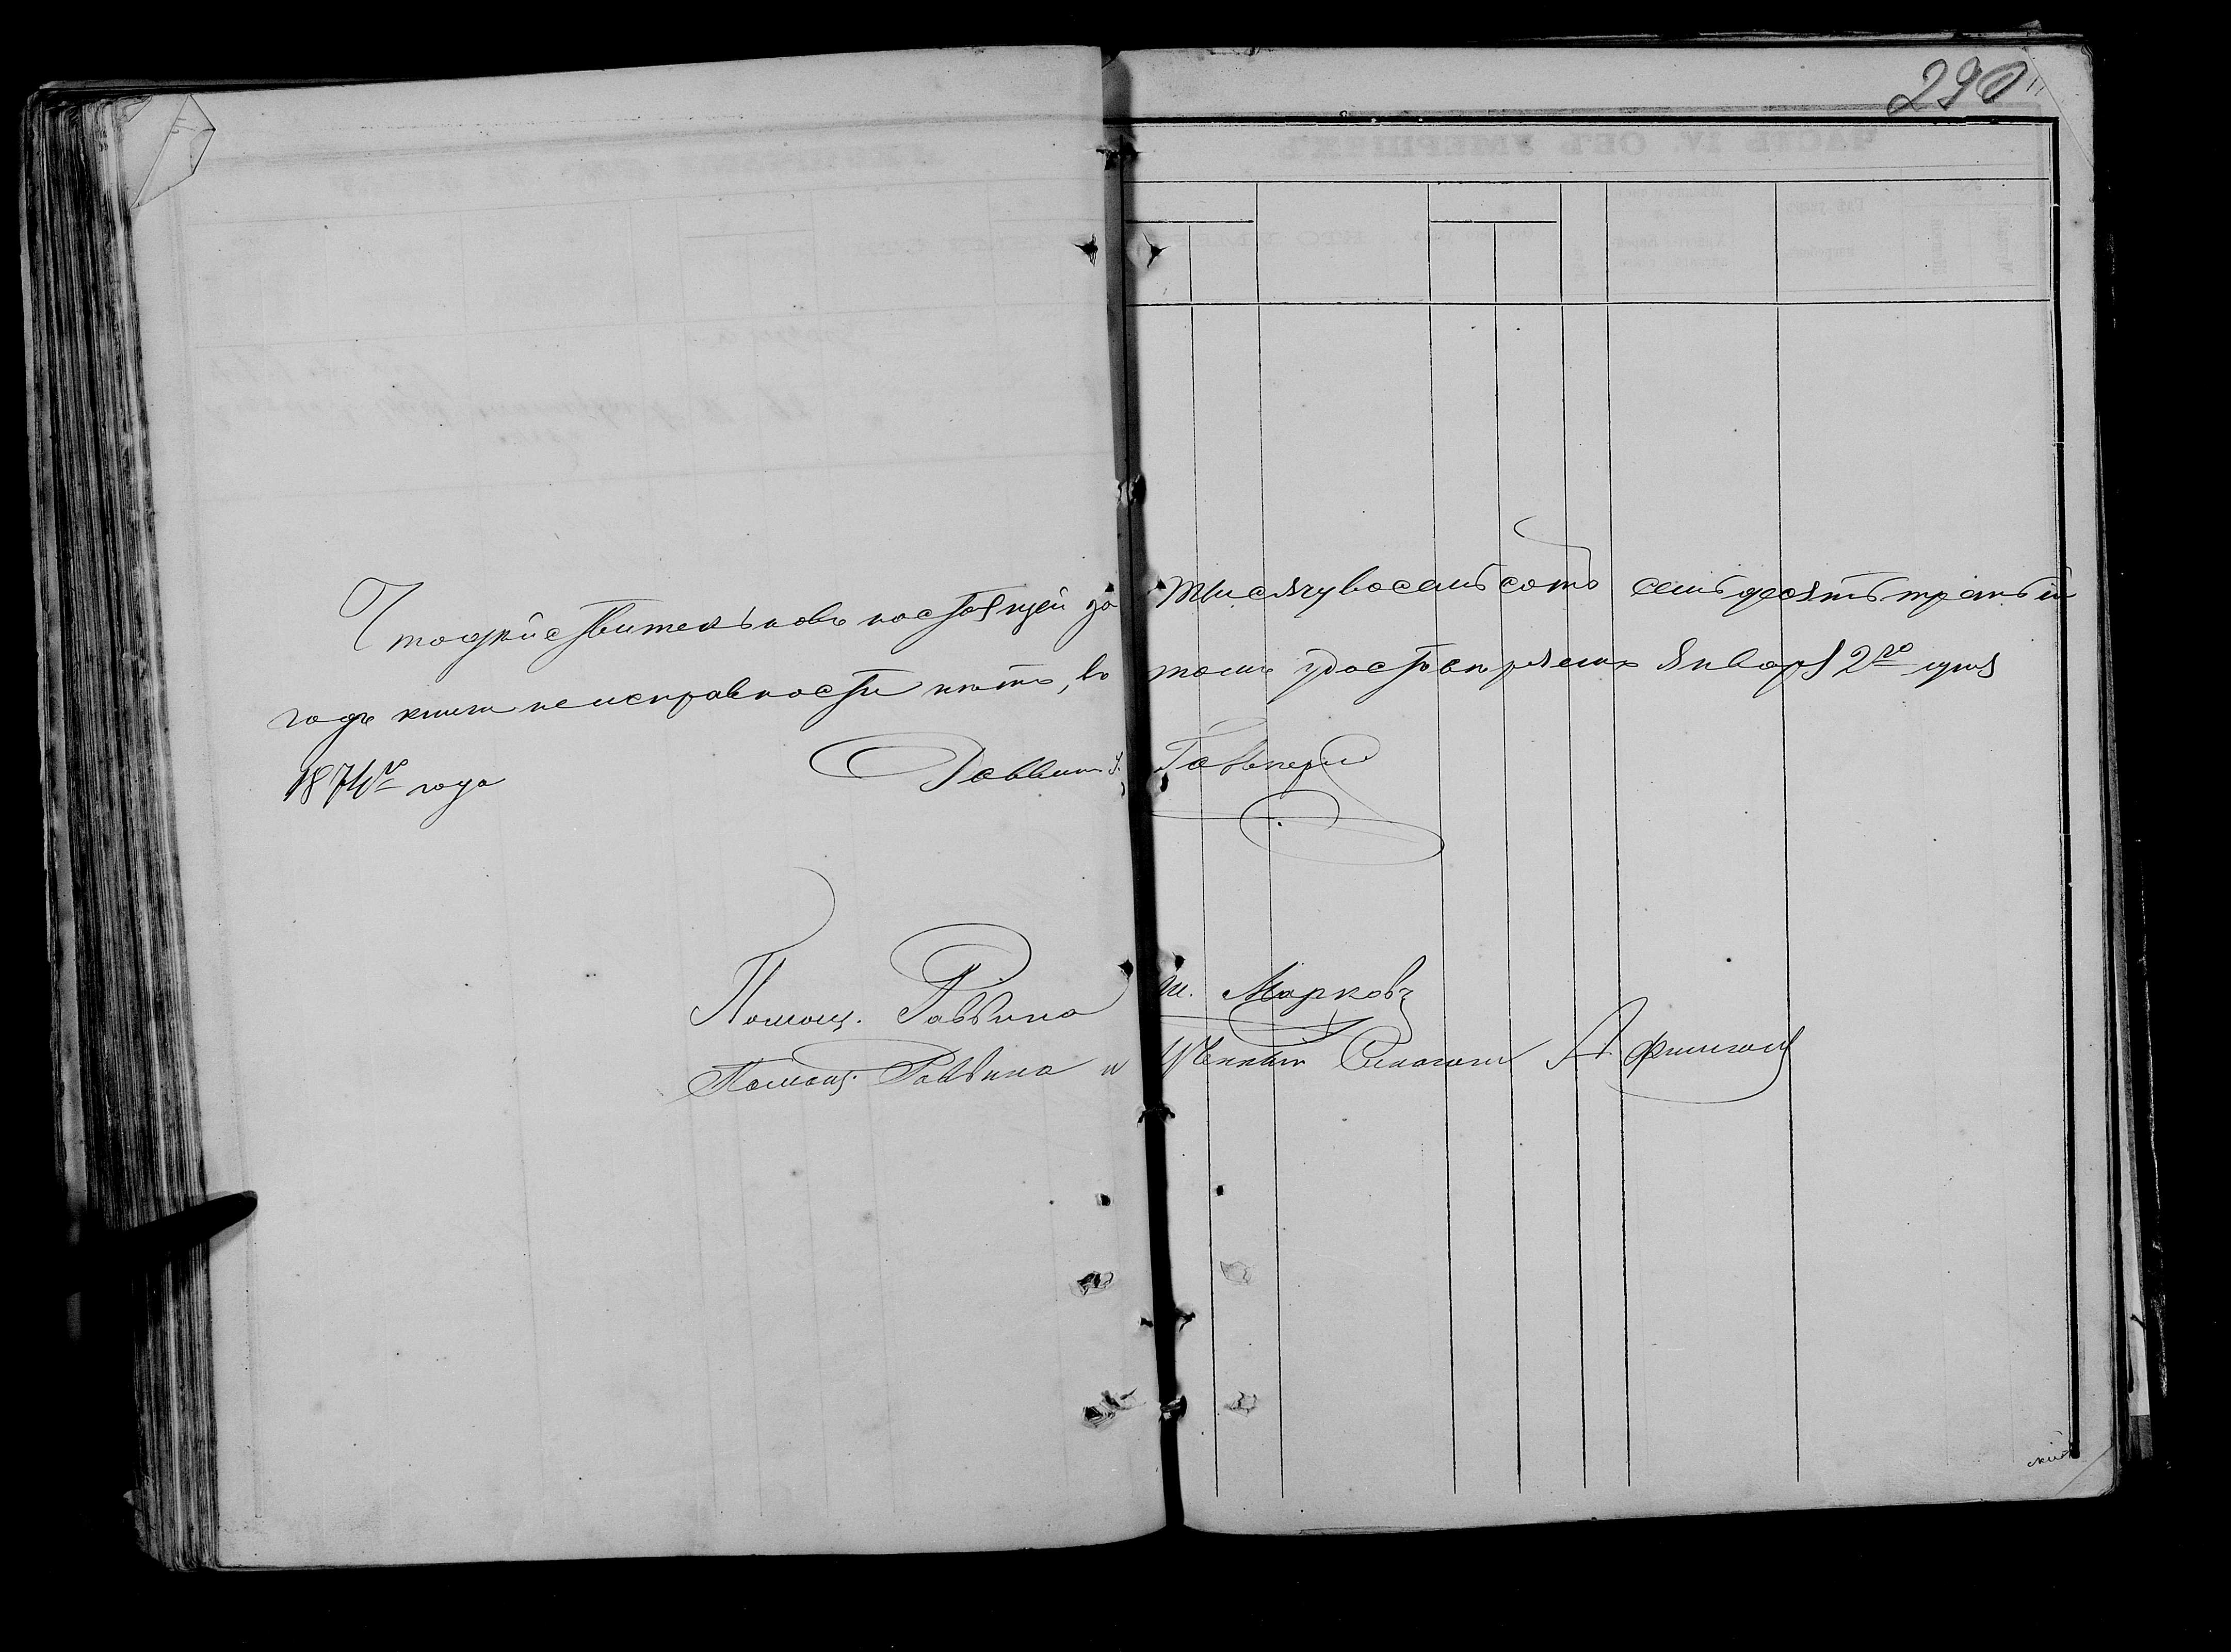 290
Что дѣйствительно въ настоящей за тысячу восемьсотъ семьдесятъ третьій
годъ книги неисправности нѣтъ, въ томъ удостовѣряемъ Января 2го дня
1874го года
Раввинъ
Помощ. Раввина М. Марковъ
Помощ. Раввина и Ученый А.